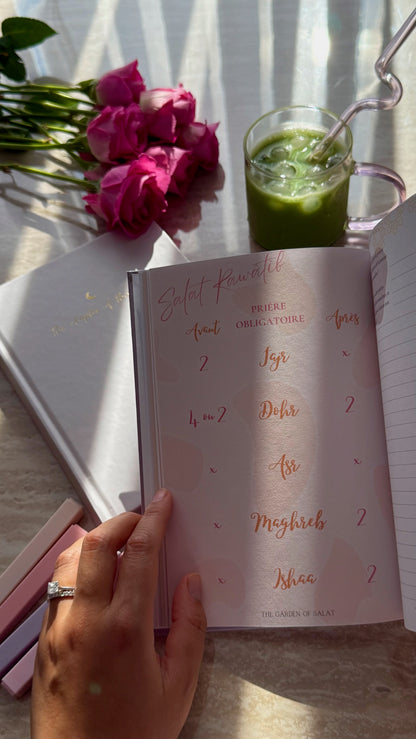 Salat Rawatib
Avant PRIÈRE OBLIGATOIRE Après
2 Fajr x
4 ou 2 Dohr 2
x Asr x
x Maghreb 2
x Ishaa 2
THE GARDEN OF SALAT